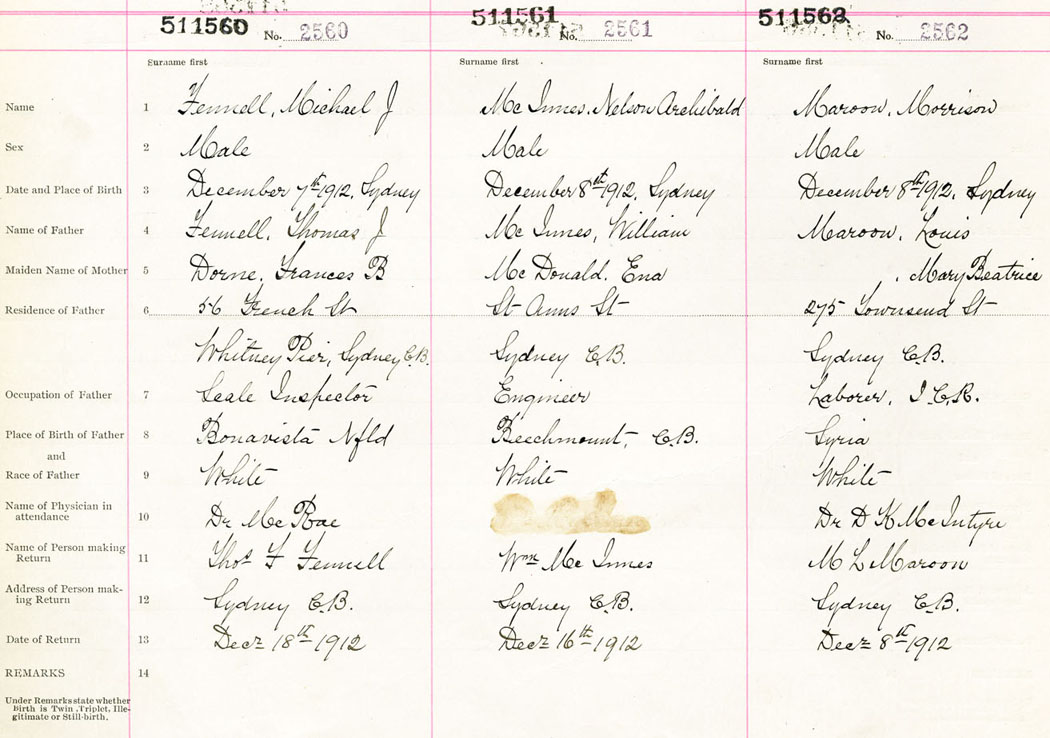 511560 No. 2560 511561 No. 2561 511562 No. 2562
Surname first Surname first Surname first
Name 1 Fennell, Michael J Mc Innes, Nelson Archibald Maroon, Morrison
Sex 2 Male Male Male
Date and Place of Birth 3 December 7th 1912, Sydney December 8th 1912, Sydney December 8th 1912, Sydney
Name of Father 4 Fennell, Thomas J Mc Innes, William Maroon, Louis
Maiden Name of Mother 5 Dorne, Frances B Mc Donald, Ena , Mary Beatrice
Residence of Father 6 56 French St St Anns St 275 Townsend St
Whitney Pier, Sydney C.B. Sydney C.B. Sydney C.B.
Occupation of Father 7 Scale Inspector Engineer Laborer, I.C.R.
Place of Birth of Father 8 Bonavista Nfld Beechmount, C.B. Syria
and
Race of Father 9 White White White
Name of Physician in
attendance 10 Dr Mc Rae Dr D K McIntyre
Name of Person making
Return 11 Thos F Fennell Wm Mc Innes M L Maroon
Address of Person mak-
ing Return 12 Sydney C.B. Sydney C.B. Sydney C.B.
Date of Return 13 Decr 18th 1912 Decr 16th 1912 Decr 8th 1912
REMARKS 14
Under Remarks state whether
Birth is Twin, Triplet, Ille-
gitimate or Still-birth.